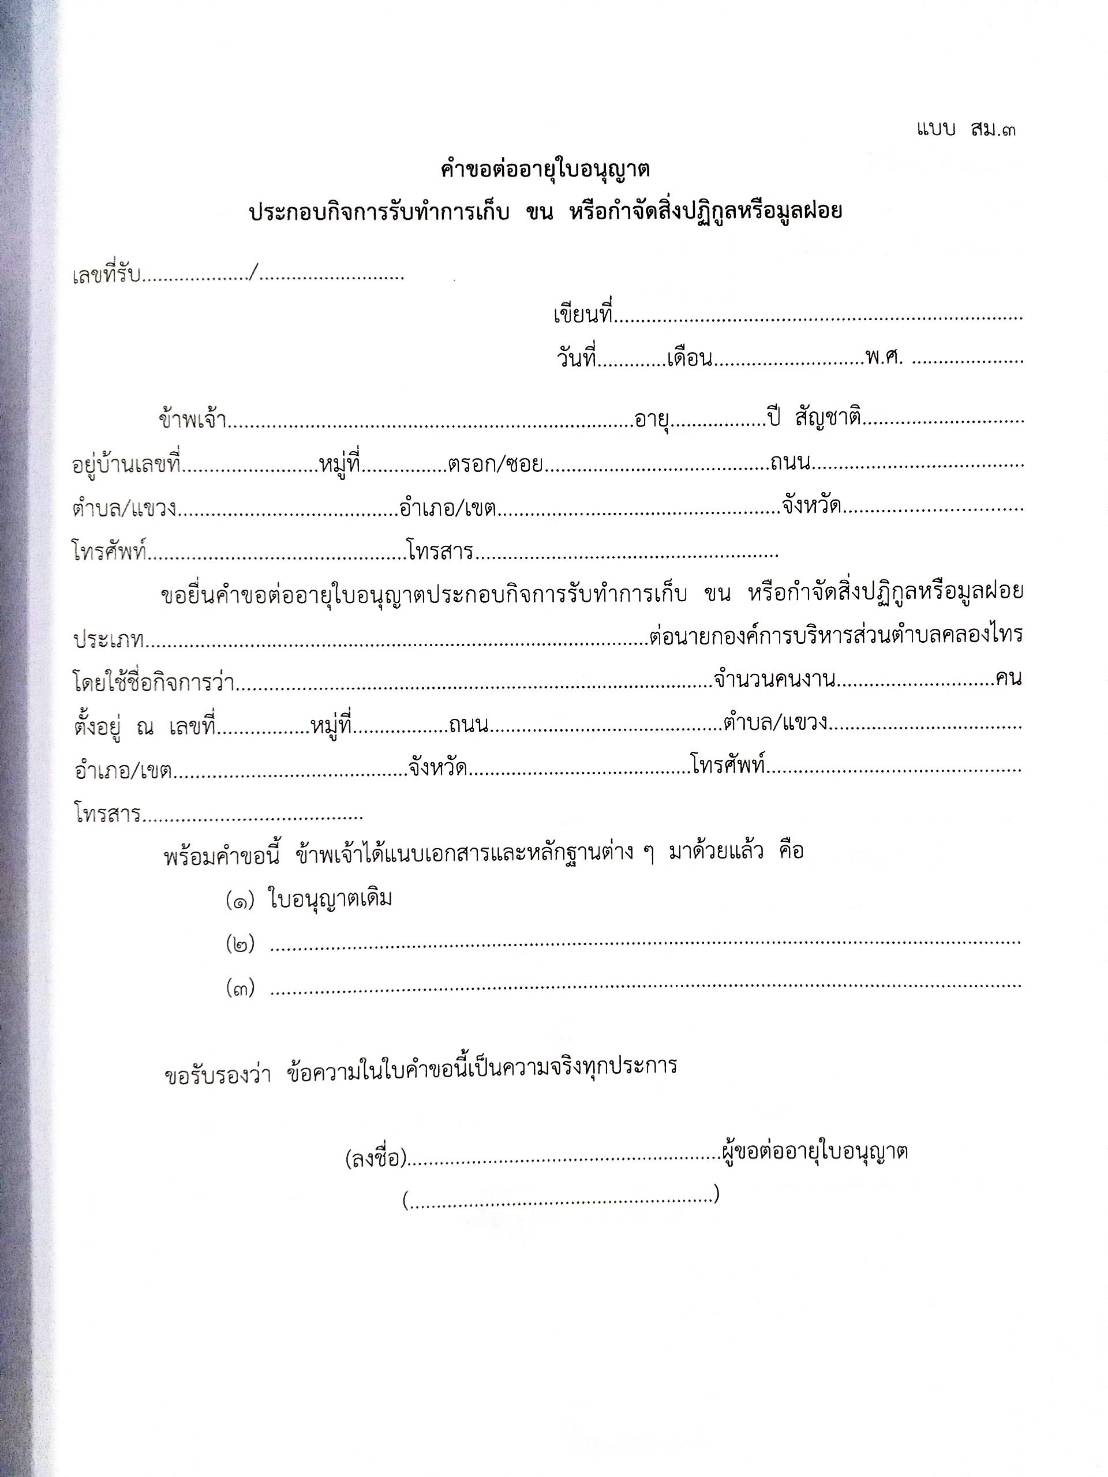 แบบ สม.๓
คำขอต่ออายุใบอนุญาต
ประกอบกิจการรับทำการเก็บ ขน หรือกำจัดสิ่งปฏิกูลหรือมูลฝอย
เลขที่รับ..................../...........................
เขียนที่............................................................................
วันที่.............เดือน............................พ.ศ. .....................
ข้าพเจ้า...........................................................................อายุ..................ปี สัญชาติ..............................
อยู่บ้านเลขที่..........................หมู่ที่................ตรอก/ซอย..........................................ถนน........................................
ตำบล/แขวง.........................................อำเภอ/เขต.....................................................จังหวัด..................................
โทรศัพท์................................................โทรสาร.........................................................
ขอยื่นคำขอต่ออายุใบอนุญาตประกอบกิจการรับทำการเก็บ ขน หรือกำจัดสิ่งปฏิกูลหรือมูลฝอย
ประเภท..............................................................................................ต่อนายกองค์การบริหารส่วนตำบลคลองไทร
โดยใช้ชื่อกิจการว่า.........................................................................................จำนวนคนงาน..............................คน
ตั้งอยู่ ณ เลขที่.................หมู่ที่..................ถนน............................................ตำบล/แขวง....................................
อำเภอ/เขต............................................จังหวัด..........................................โทรศัพท์................................................
โทรสาร.........................................
พร้อมคำขอนี้ ข้าพเจ้าได้แนบเอกสารและหลักฐานต่าง ๆ มาด้วยแล้ว คือ
(๑) ใบอนุญาตเดิม
(๒) ............................................................................................................................................
(๓) ............................................................................................................................................
ขอรับรองว่า ข้อความในใบคำขอนี้เป็นความจริงทุกประการ
(ลงชื่อ)..........................................................ผู้ขอต่ออายุใบอนุญาต
(.........................................................)